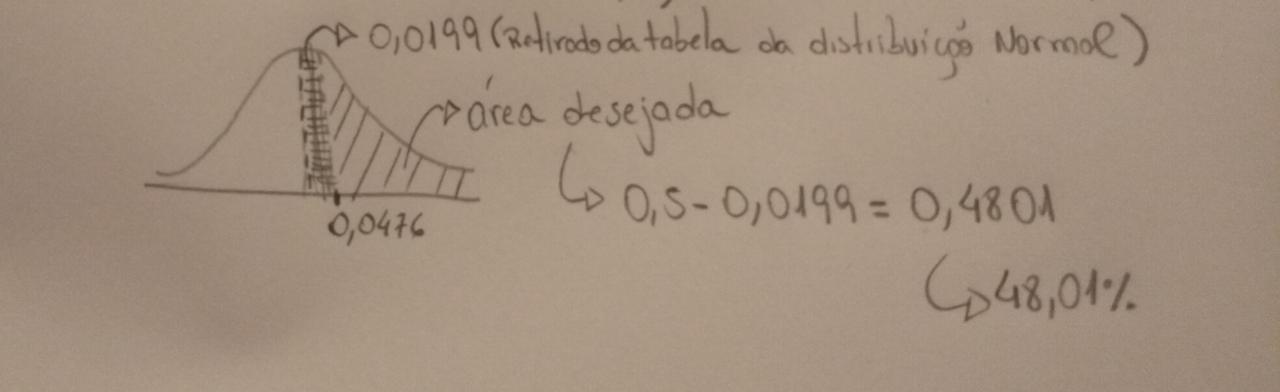 0,0199 (Retirado da tabela da distribuição Normal)
área desejada
0,5 - 0,0199 = 0,4801
0,0476
48,01%